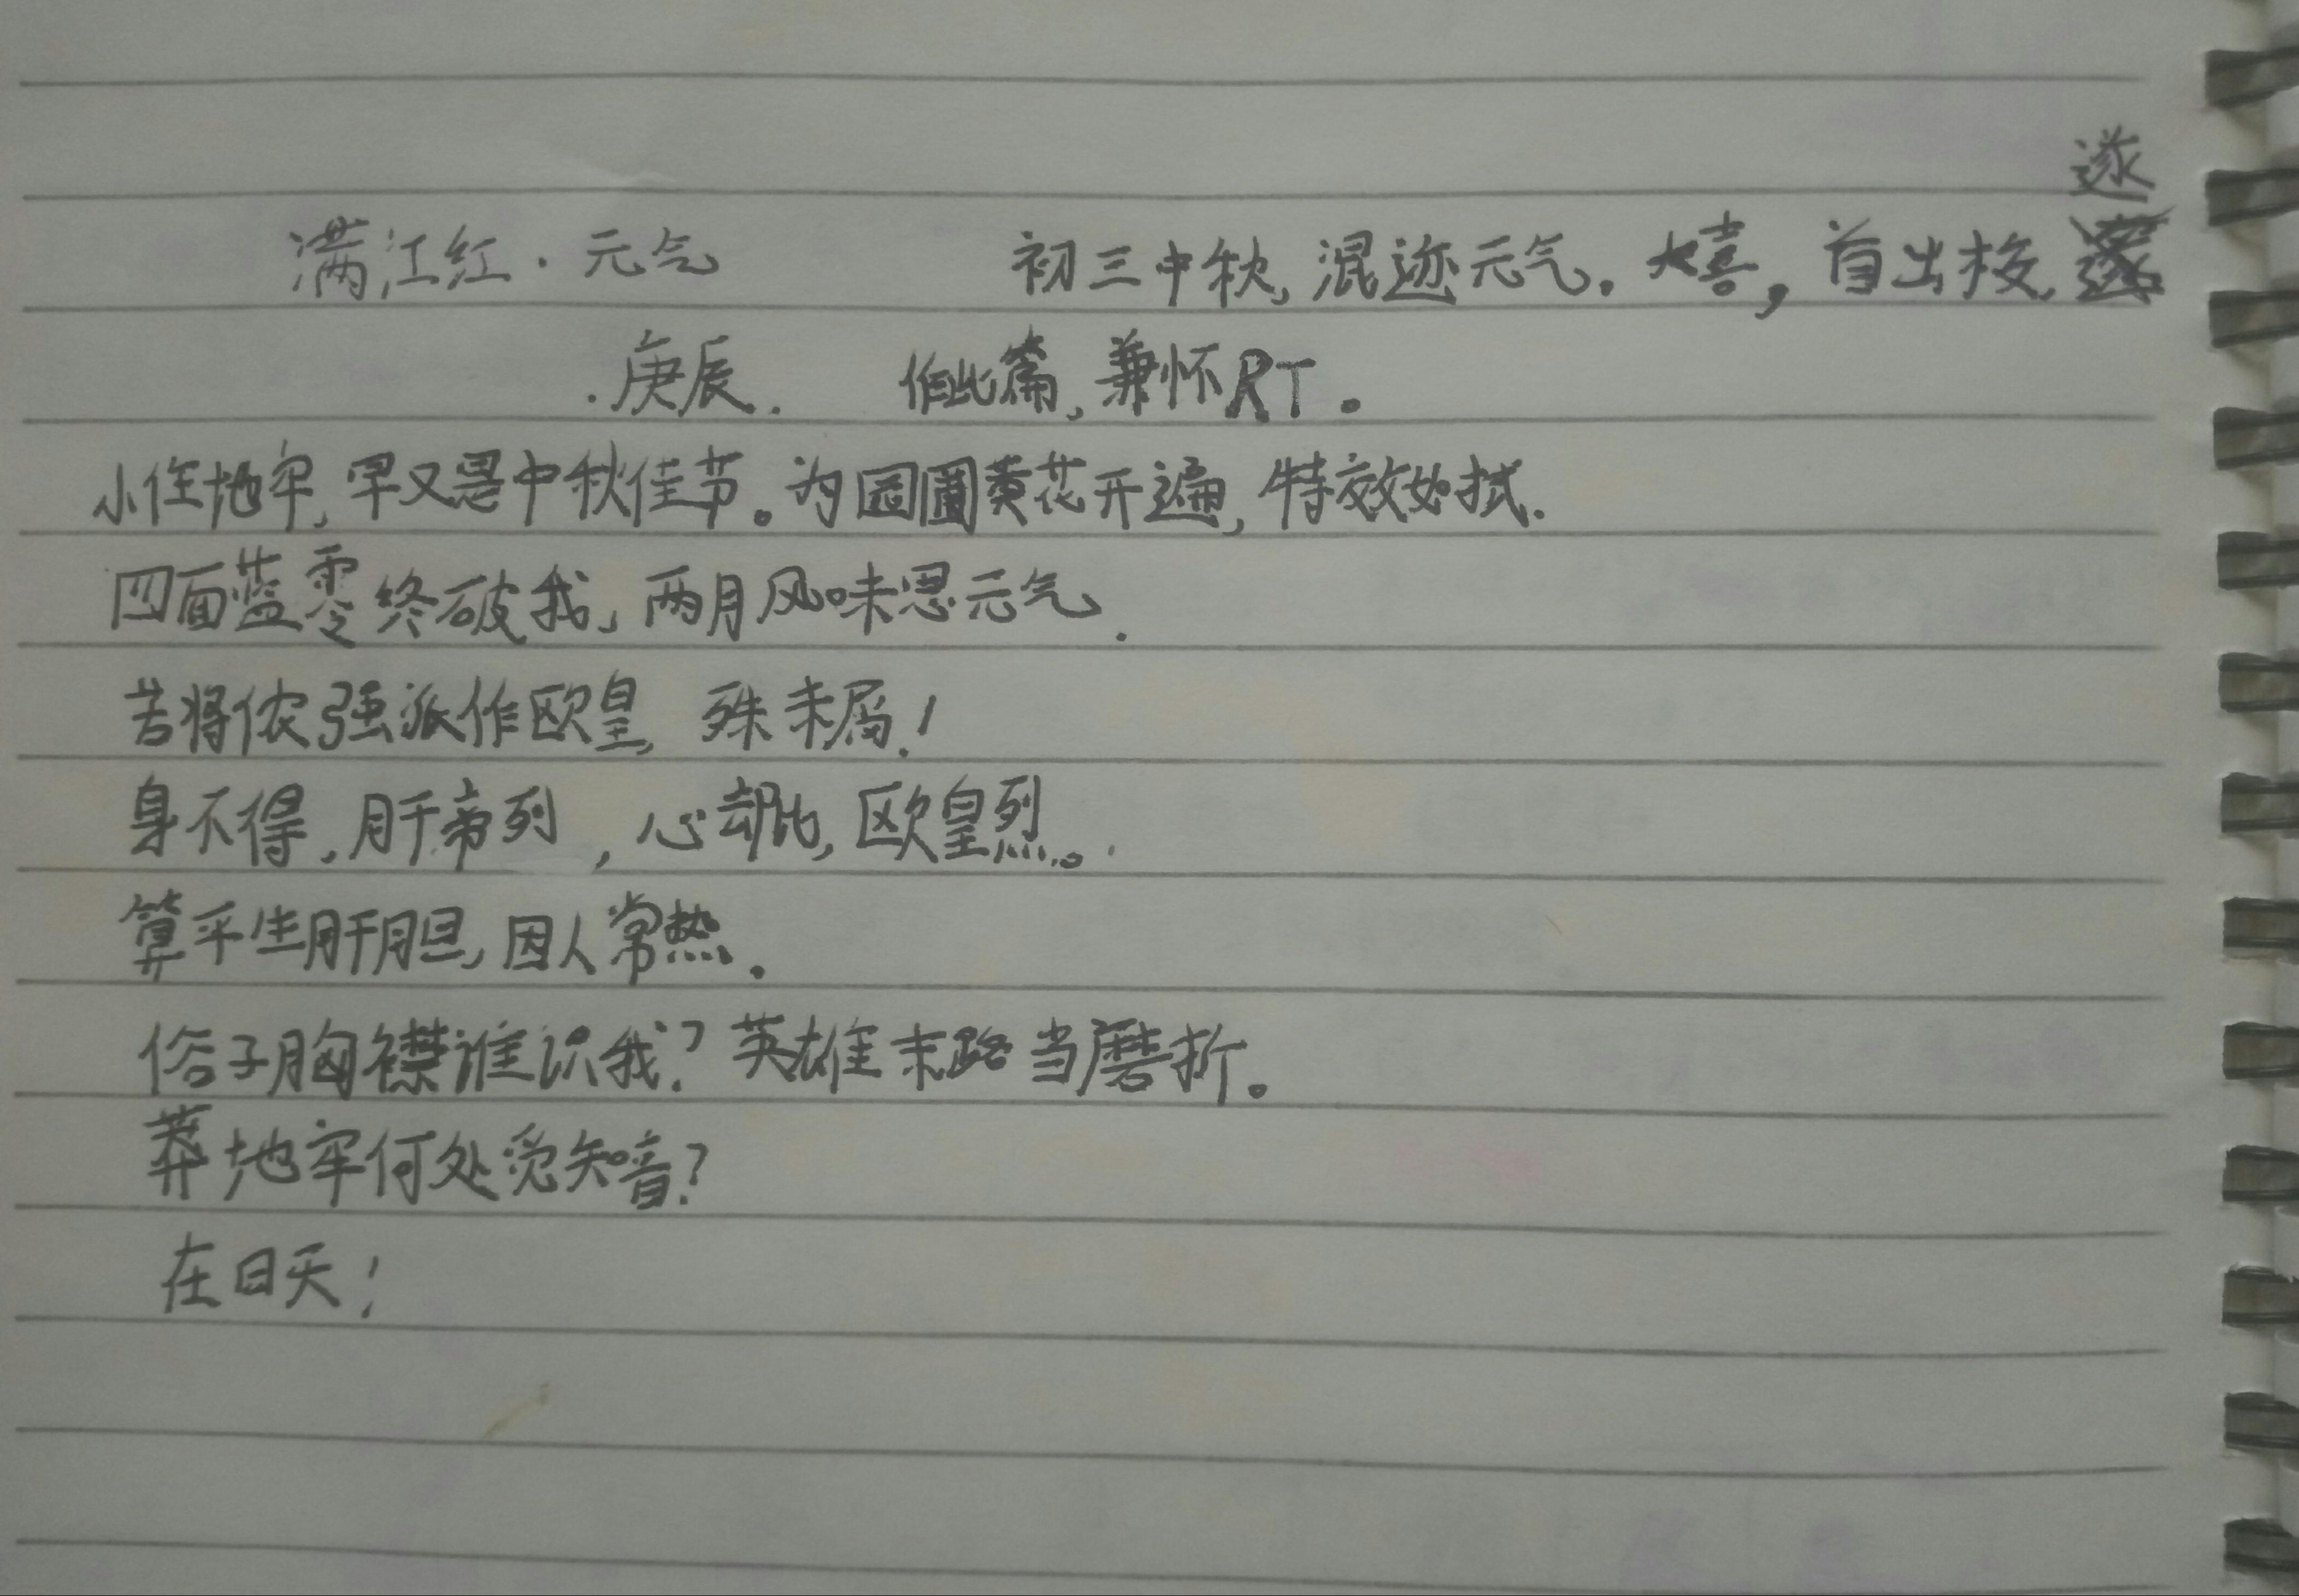 满江红·元气 初三中秋,混迹元气。嘻,首出梭,遂
.庚辰. 作此篇,兼怀RT。
小住地牢,早又是中秋佳节。为园圃黄花开遍,特效如拭.
四面蓝零终破我,两月风味思元气.
苦将侬强派作欧皇,殊未屑!
身不得,肝帝列,心却比,欧皇烈。
算平生肝胆,因人常热.
俗子胸襟谁识我?英雄末路当磨折。
莽地牢何处觅知音?
在日天!